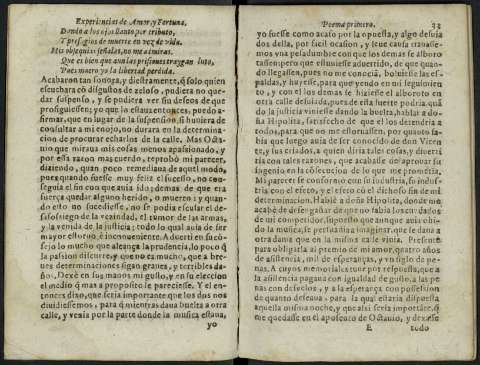 Experiencias de Amor, y Fortuna,
Denlo a los ojos llanto por tributo,
Y presagios de muerte en vez de vida.
Mis obsequias señalas, no me admiras.
Que es bien que aun las prisiones traygan luto,
Pues muero yo la libertad perdida.
Acabaron tan sonora, y diestramente, q̃ solo quien
escuchara cõ disgustos de zeloso, pudiera no que-
dar suspenso, y se pudiera ver sin deseos de que
prosiguiessen; yo que lo estaua entonces, puedo a-
firmar, que en lugar de la suspension, si huuiera de
consultar a mi enojo, no durara en la determina-
cion de procurar echarlos de la calle. Mas Octa-
uio que miraua mis cosas menos apasionado, y
por essa razon mas cuerdo, reprobò mi parecer,
diziendo, quan poco remediaua de aquel modo,
pues quando fuesse muy feliz el sucesso, no con-
seguia el fin con que auia ido; demas de que era
fuerça quedar alguno herido, o muerto: y quan-
do esto no sucediesse, no se podia escusar el de-
sasosiego de la vezindad, el rumor de las armas,
y la venida de la justicia: todo lo qual auia de ser
mayor estoruo, è inconueniente. Aduerti en su cõ-
sejo lo mucho que alcança la prudencia, lo poco q̃
la passion discurre, y que no es mucho, que a bre-
ues determinaciones sigan graues, y terribles da-
ños. Dexè en sus manos mi gusto, y en su eleccion
el medio q̃ mas a proposito le pareciesse. Y el en-
tonces dixo, que seria importante que los dos nos
diuidiessemos, para q̃ mientras daua buelta a otra
calle, y venia por la parte donde la musica estaua,
yo
Poema primero. 33
yo fuesse como acaso por la opuesta, y algo desuia
dos della, por facil ocasion, y leue causa trauasse-
mos vna pesadumbre con que los demas se albo-
rotassen: pero que estuuiesse aduertido, de que quan-
do llegassen, pues no me conocia, boluiesse las es-
paldas, y huyesse, para que yendo en mi seguimien
to, y con el los demas se hiziesse el alboroto en
otra calle desuiada, pues de essa suerte podria, quã
do la justicia viniesse dando la buelta, hablar a do-
ña Hipolita, satisfecho de que el los detendria a
todos, para que no me estoruassen, por quanto sa-
bia que luego auia de ser conocido de don Vicen
te, y sus criados, a quien diria tales cosas, y diuerti
ria con tales razones, que acabasse de aprouar su
ingenio en la consecucion de lo que me prometia.
Mi parecer se conformò con su industria, su indus-
tria con el efeto, y el efeto cõ el dichoso fin de mi
determinacion. Hablè a doña Hipolita, donde me
acabè de desengañar de que no sabia los cuydados de
mi competidor, supuesto que aunque auia oi-
do la musica, se persuadia a imaginar, que se daua a
otra dama que en la misma calle viuia. Presente
para obligarla al premio de mi amor, quatro años
de assistencia, mil de esperanças, y vn siglo de pe-
nas. A cuyos memoriales tuue por respuesta, que a
la assistencia pagaua con igualdad de gusto, a las pe
nas con desuelos, y a la esperança con possession
de quanto deseaua, para la qual estaria dispuesta
aquella misma noche, y que assi seria importãte, q̃
me quedasse en el aposento de Octauio, y dexasse
E todo